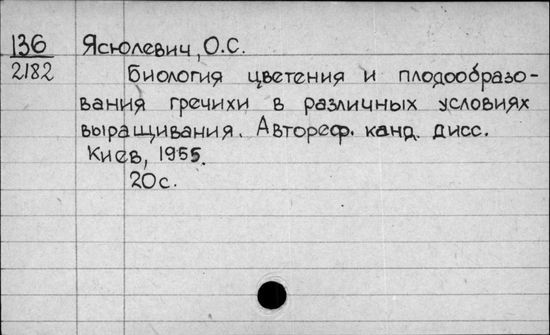 136 Ясюлевич, О.С.
2182 Биология цветения и плодообразо-
вания гречихи в различных условиях
выращивания. Автореф. канд. дисс.
Киев, 1955.
20 с.